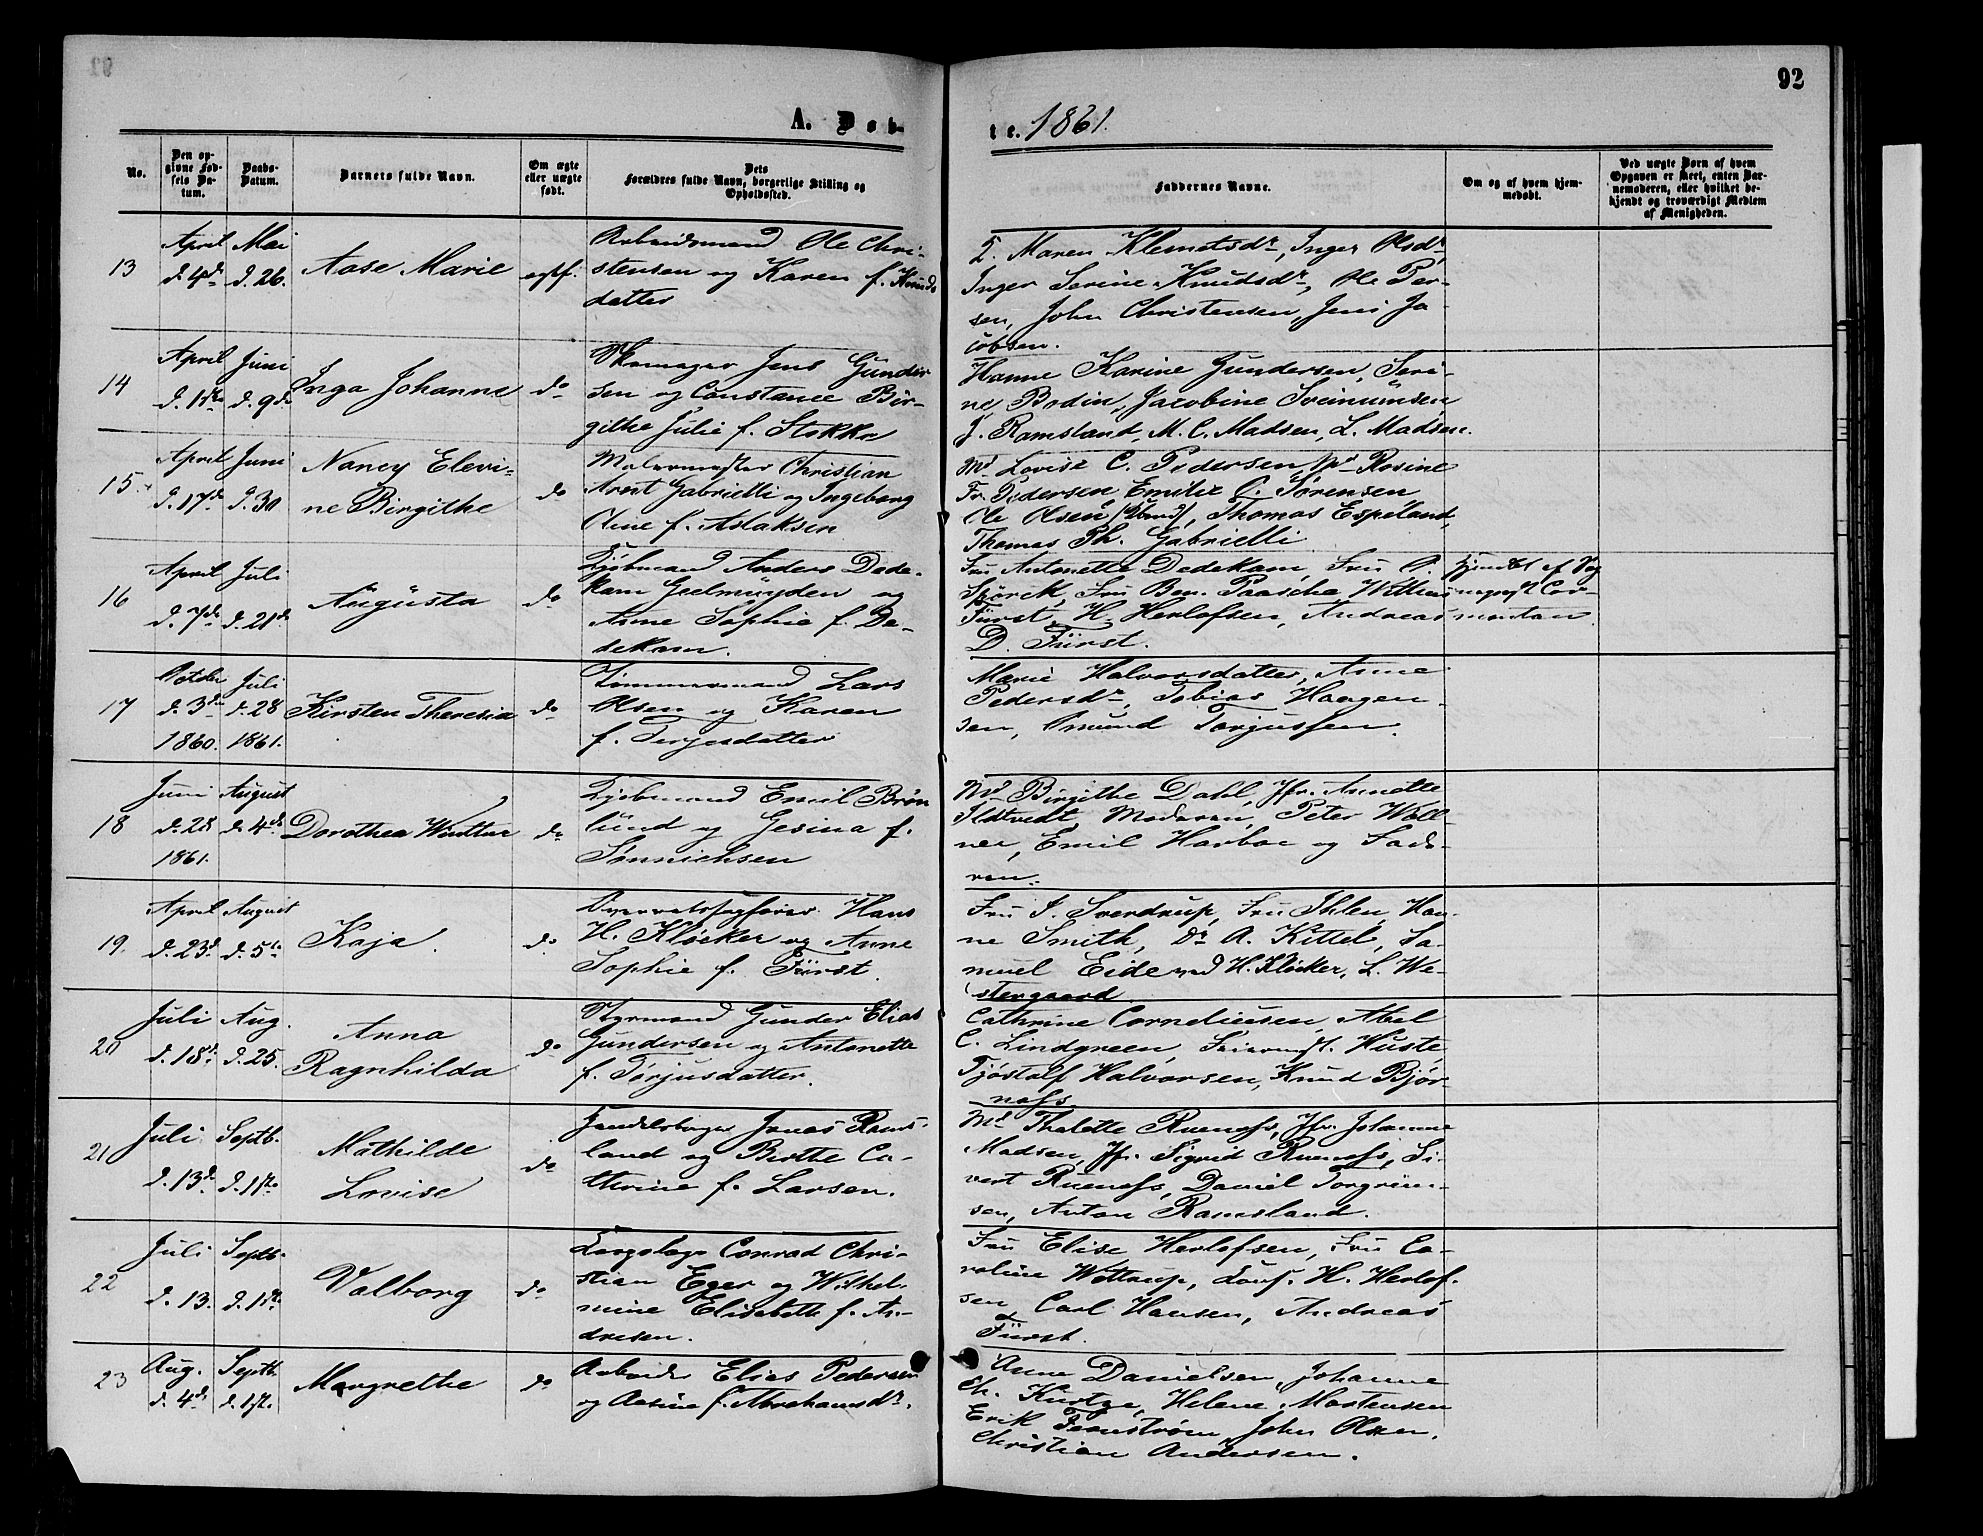 92
A. Døb-
te. 1861.
No.
Den op-
givne Fød-
sels Da-
tum.
Daabs-
Datum.
Barnets fulde Navn.
Om ægte
eller uægte
født.
Dets
Forældres fulde Navn, borgerlige Stilling og
Opholdssted.
Faddernes Navne.
Om og af hvem hjem-
medøbt.
Ved uægte Børn af hvem
Opgaven er skeet, enten Bar-
nemoderen, eller hvilket be-
kjendt og troværdigt Medlem
af Menigheden.
13
April
d. 4de
Mai
d. 26.
Aase Marie
egtf.
Arbeidsmand Ole Chri-
stensen og Karen f. Knuds
datter
Maren Klemetsdr, Inger Olsdr
Inger Serine Knudsdr, Ole Per-
sen, John Christensen, Jens Ja-
cobsen.
14
April
d. 1ste
Juni
d. 9de
Inga Johanne
do
Skomager Jens Gunder
sen og Constance Bir-
githe Julie f. Stokke
Hanne Karine Gundersen, Seri-
ne Bodin, Jacobine Sveinumsen
J. Ramsland, M. C. Madsen, L. Madsen.
15
April
d. 17de
Juni
d. 30
Nancy Elevi-
ne Birgithe
do
Malermester Christian
Arnt Gabrielli og Ingeborg
Oline f. Aslaksen
Md Lovise C. Pedersen, Md Rosine
Fr. Pedersen, Emilie C. Sørensen
Ole Olsen, Thomas Espeland,
Thomas Th. Gabrielli
16
April
d. 7de
Juli
d. 21de
Augusta
do
Kjøbmand Anders Dede-
kam Geelmuyden og
Anne Sophie f. De-
dekam.
Fru Antonette Dedekam, Fru C.
Spörck, Fru Ben. Paasche, William
Fürst, H. Herlofsen, Andreas
D. Fürst.
hjemdøbt af Sog
nepræst Cor-
montan
17
October
d. 3de
1860.
Juli
d. 28
1861.
Kirsten Theresia
do
Tømmermand Lars
Olsen og Karen
f. Terjesdatter
Marie Halvorsdatter, Anne
Pedersdr, Tobias Haagen-
sen, Omund Torjussen.
18
Juni
d. 28
1861.
August
d. 4de
Dorothea Wuttur
do
Kjøbmand Emil Brøn
lund og Gesina f.
Sønnichsen
Md Birgithe Dahl, Jfr. Annette
Ildtvedt, Moderen, Peter Woll-
ner, Emil Harboe og Fade-
ren.
19.
April
d. 23de
August
d. 5te
Kaja.
do
Overretssagfører Hans
H. Kløcker og Anne
Sophie f. Fürst.
Fru I. Sverdrup, Fru Ihlen, Han-
ne Smith, Dr A. Kittel, Sa-
muel Eide ved H. Kløcker, L. We-
stergaard
20
Juli
d. 18de
Aug.
d. 25.
Anna
Ragnhilda
do
Styrmand Gunder Elias
Gundersen og Antonette
f. Torjusdatter.
Cathrine Corneliusen, Abel
C. Lindgreen, Huste
Tjöstolf Halvorsen, Knud Bjør-
næss
21
Juli
d. 13de
Septb.
d. 1ste
Mathilde
Lovise
do
Handelsborger Jonas Rams-
land og Birthe Ca-
thrine f. Larsen.
Md Thalette Ruenæss, Jfr. Johanne
Madsen, Jfr. Sigrid Ruenæss, Si-
vert Ruenæss, Daniel Torgrim-
sen, Anton Ramsland.
22
Juli
d. 13.
Septb.
d. 1ste
Valborg
do
Corpslæge Conrad Chri-
stian Eger og Wilhel-
mine Elisabeth f. An-
dresen.
Fru Elise Herlofsen, Fru Ca-
roline Wettrup, H. Herlof-
sen, Carl Hansen, Andreas
Fürst.
23
Aug.
d. 4de
Septb.
d. 1ste
Margrethe
do
Arbeider Elias Pedersen
og Aasine f. Abrahamsdr.
Anne Danielsen, Johanne
Ch. Helene Mortensen
Erik Fernstrøm, John Olsen,
Christian Andersen.